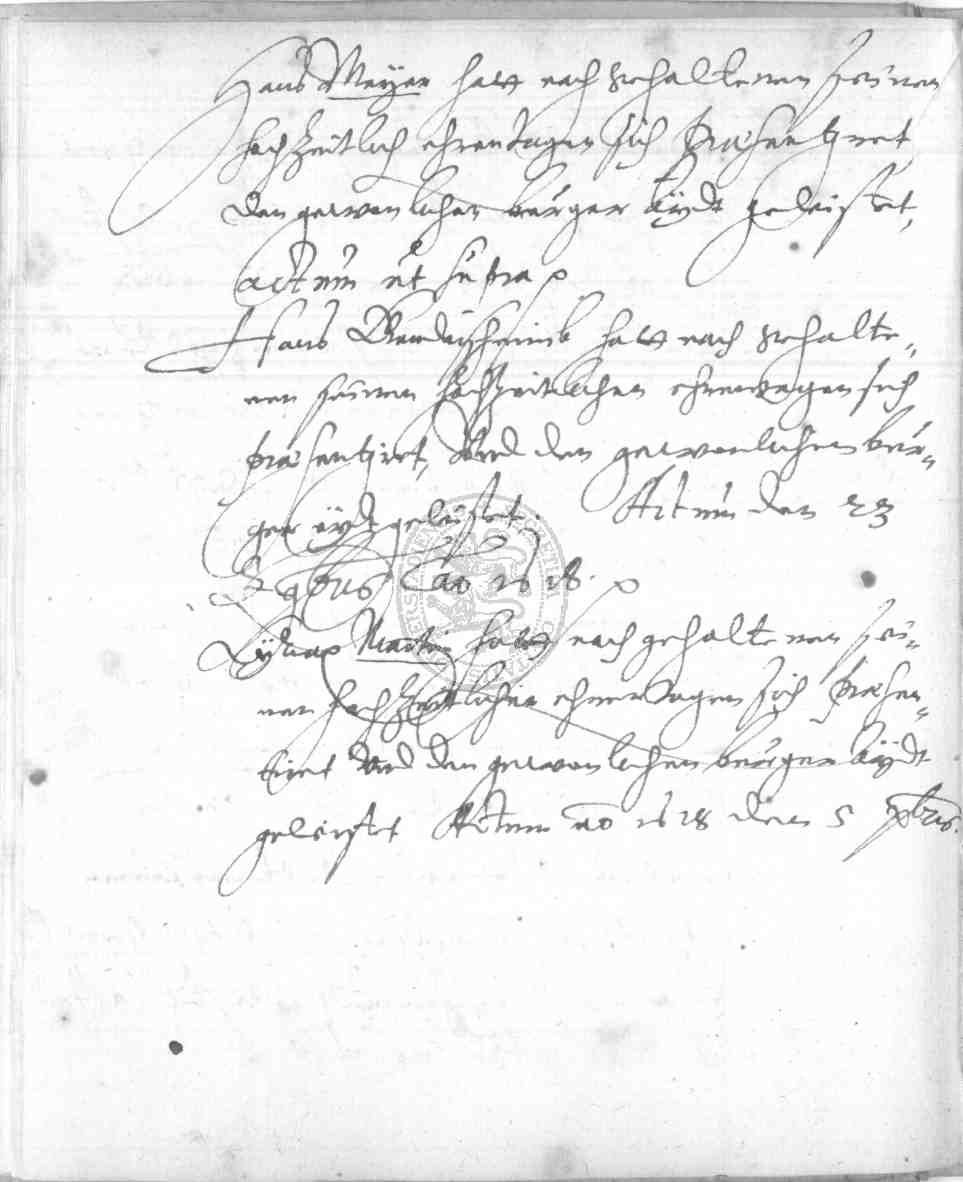 Hans Meÿer hatt nach gehaltenen seinen
hochzeitlich ehrentagen sich præsentiret
den gewonlichen burger äÿdt geleistet,
actum ut supra
Hans hatt nach gehalte-
nen seinen hochzeitlichen ehrentagen sich
præsentiret, Und den gewonlichen bur-
ger äÿdt geleistet. Actum den 23
9bris Ao 1618.
Martin hatt nach gehaltenen sei-
nen hochzeitlichen ehrentagen sich præsen-
tiret Und den gewonlichen burger äÿdt
geleistet Actum ao 1618 den 5 xbris.